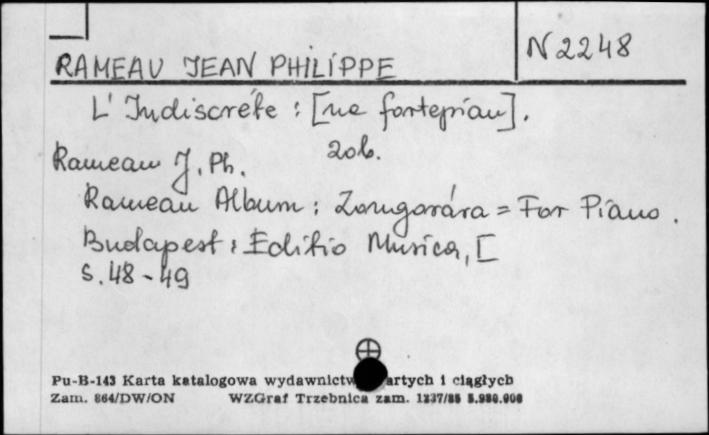 N 2248
RAMEAU JEAN PHILIPPE
L'Indiscrète : [na fortepian].
zob.
Rameau J. Ph.
Rameau Album : Zongorára = For Piano.
Budapest : Editio Musica, [
s. 48-49
Pu-B-143 Karta katalogowa wydawnictw artych i ciągłych
Zam. 864/DW/ON WZGraf Trzebnica zam. 1237/85 5.980.000